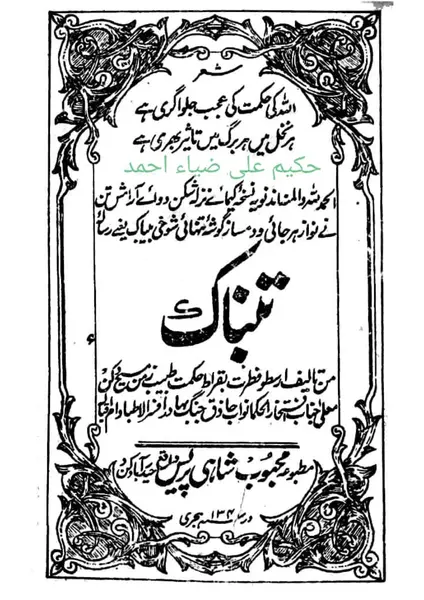 شعر
اللہ کی حکمت کی عجب جلوا گری ہے
ہر نخل میں ہر برگ میں تاثیر بھری ہے
حکیم علی ضیاء احمد
الحمد للہ والمنہ نسخہ کیمائے نزلہ شکن دوائے آرائش تن
نے نواز ہر جائی و دمساز گوشۂ تنہائی شوخی بیباک یعنے رسالہ
تنباک
من تالیف ارسطو فطرت بقراط حکمت طبیب زمن مسیح دکن
معلی جناب افتخار الحکما نواب حاذق جنگ بہادر افسر الاطبا
مطبوعہ محبوب شاہی پریس واقع حیدرآباد دکن
در سنہ ۱۳۴ ہجری